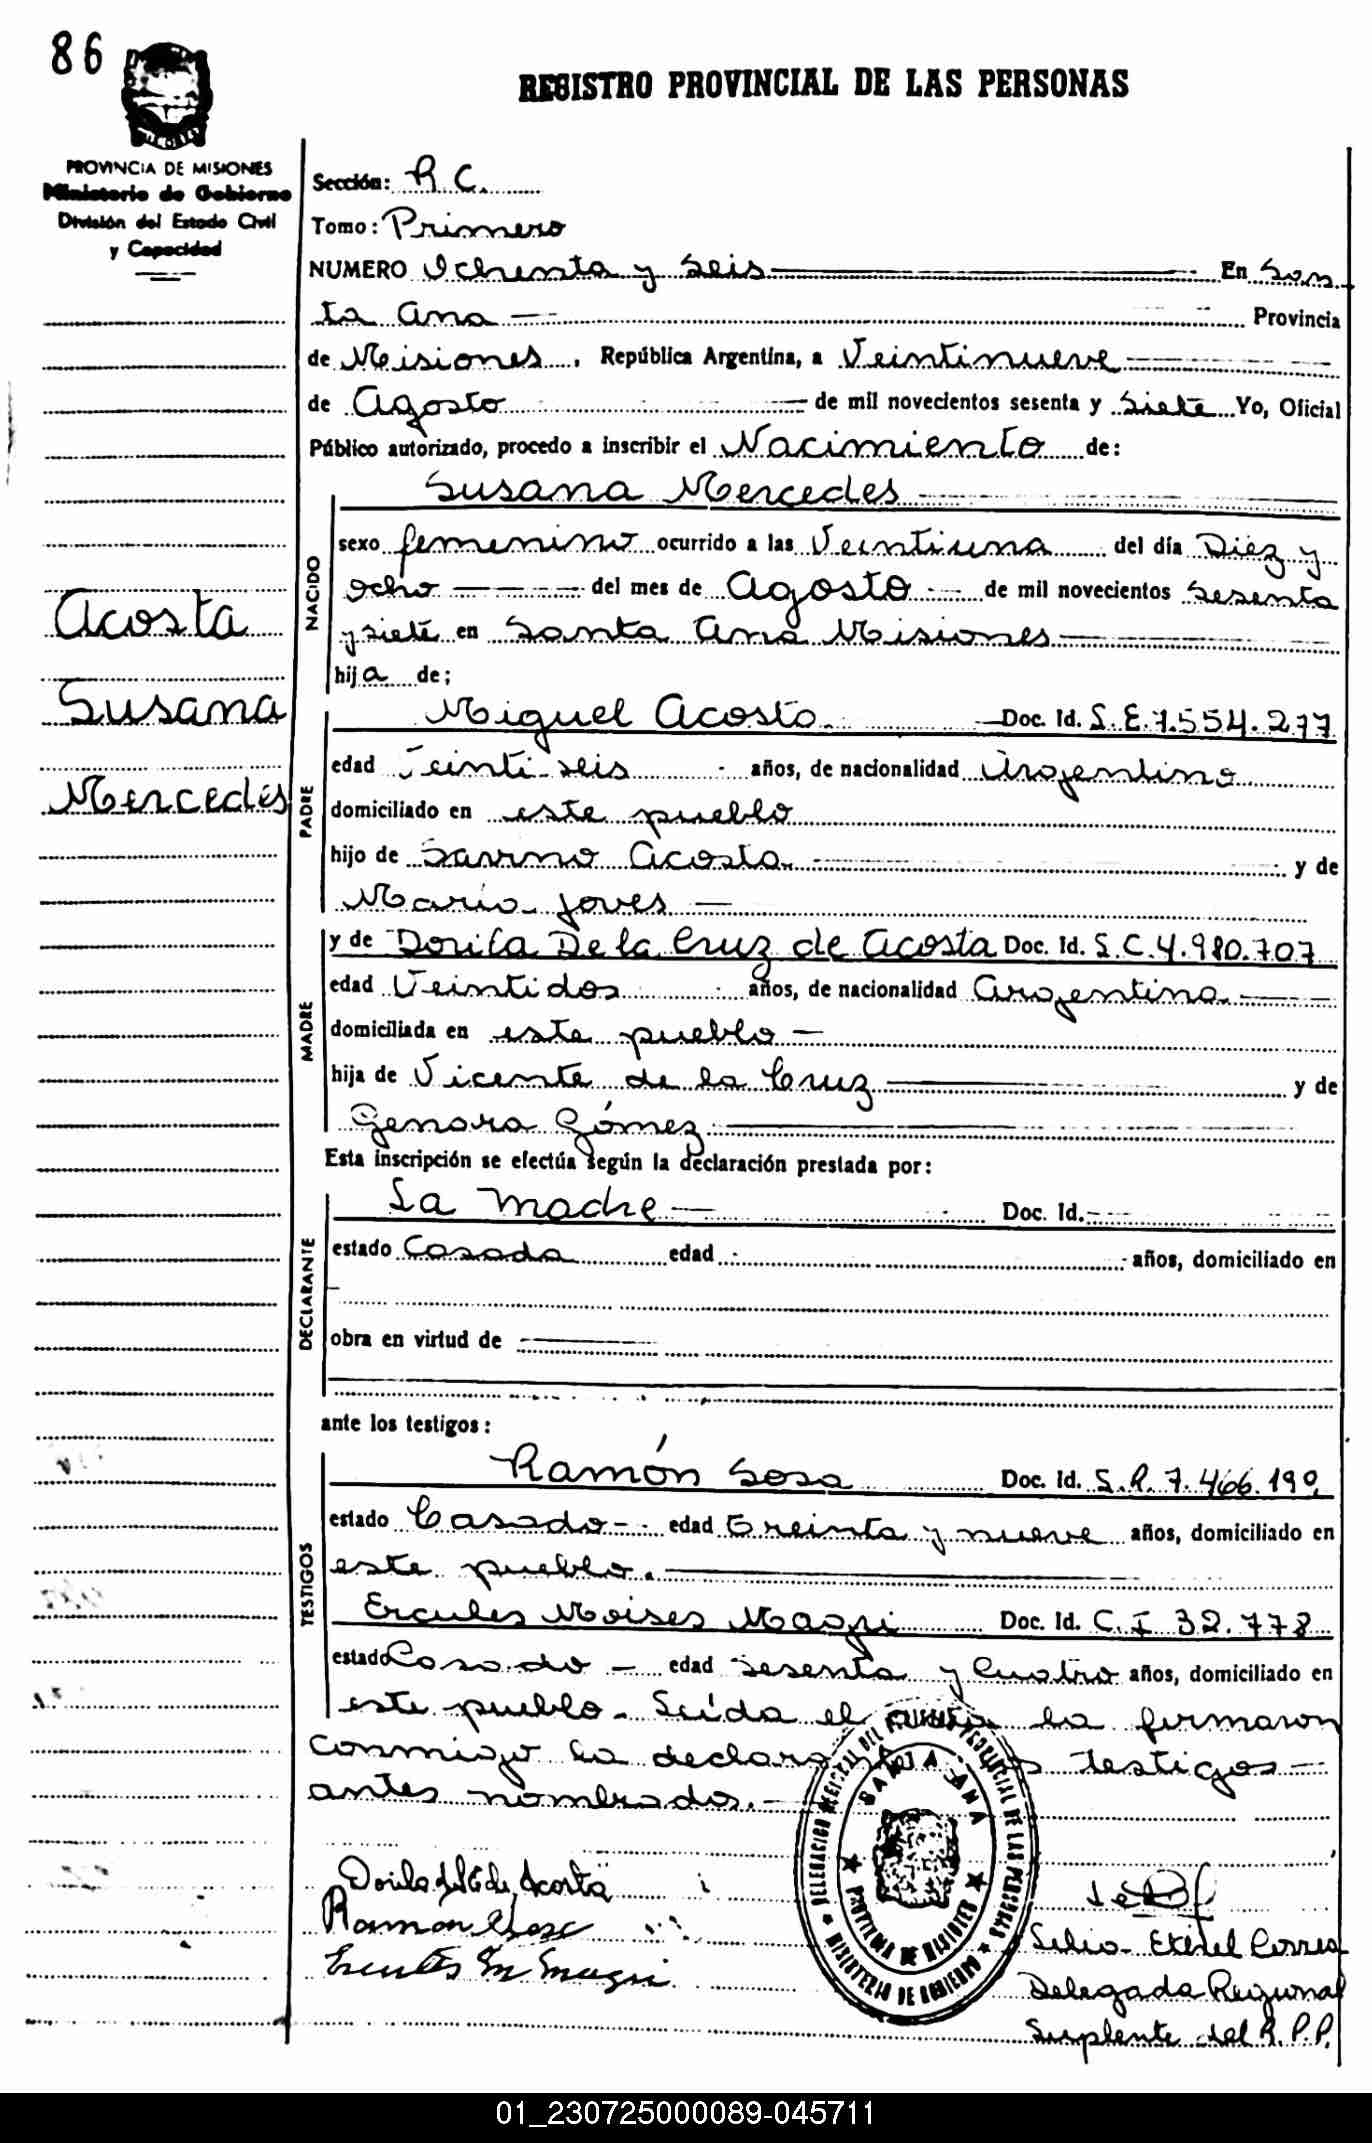 86
REGISTRO PROVINCIAL DE LAS PERSONAS
PROVINCIA DE MISIONES
Ministerio de Gobierno
División del Estado Civil
y Capacidad
Acosta
Susana
Mercedes
Sección: R.C.
Tomo: Primero
NUMERO Ochenta y Seis En San
ta Ana Provincia
de Misiones, República Argentina, a Veintinueve
de Agosto de mil novecientos sesenta y Siete Yo, Oficial
Público autorizado, procedo a inscribir el Nacimiento de:
Susana Mercedes
NACIDO
sexo femenino ocurrido a las Veintiuna del día Diez y
ocho del mes de Agosto de mil novecientos Sesenta
y siete en Santa Ana Misiones
hija de;
PADRE
Miguel Acosta Doc. Id. S.E. 7.554.277
edad Veinti seis años, de nacionalidad Argentino
domiciliado en este pueblo
hijo de Savino Acosta y de
María Joves
MADRE
y de Dorila De la Cruz de Acosta Doc. Id. S.C. 4.980.707
edad Veintidos años, de nacionalidad Argentina
domiciliada en este pueblo
hija de Vicente de la Cruz y de
Genara Gómez
Esta inscripción se efectúa según la declaración prestada por:
DECLARANTE
La madre Doc. Id.
estado Casada edad años, domiciliado en
obra en virtud de
ante los testigos:
TESTIGOS
Ramón Sosa Doc. Id. S.R. 7.466.190
estado Casado edad Treinta y nueve años, domiciliado en
este pueblo.
Ercules Moises Magri Doc. Id. C.I 32.778
estado Casado edad Sesenta y Cuatro años, domiciliado en
este pueblo. Leída el acta la firmaron
conmigo la declarante los testigos
antes nombrados.
SANTA ANA
PROVINCIA DE MISIONES
MINISTERIO DE GOBIERNO
Dorila de Acosta
Ramón Sosa
Ercules M Magri
Correa
Delegada Regional
Suplente del R.P.P.
01_230725000089-045711